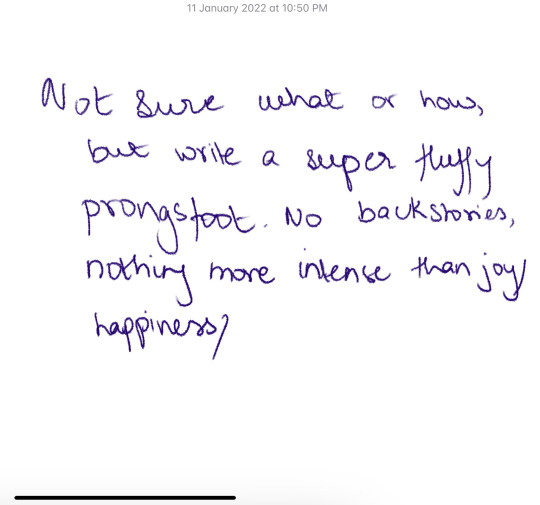 11 January 2022 at 10:50 PM
Not sure what or how,
but write a super fluffy
prongsfoot. No backstories,
nothing more intense than joy/
happiness?